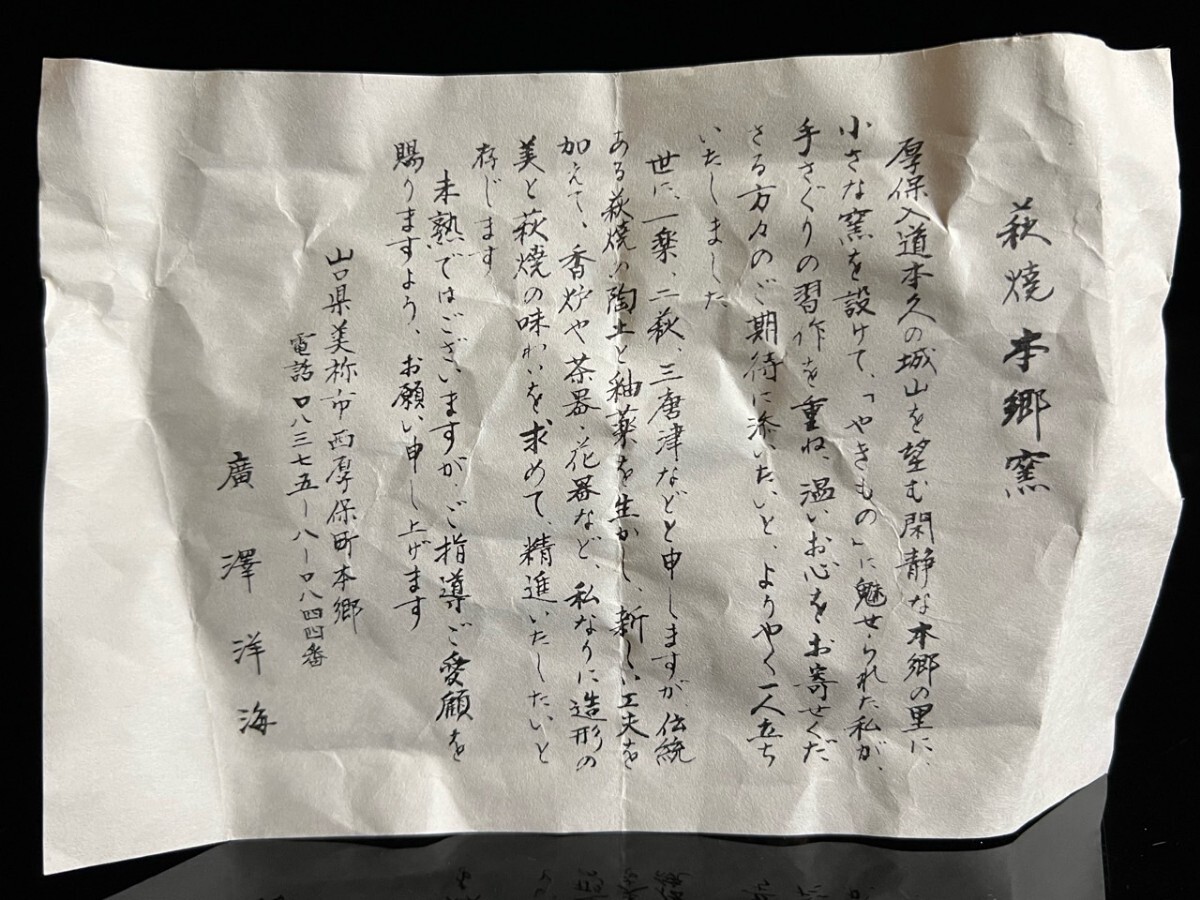 萩焼 本郷窯
厚保入道本久の城山を望む閑静な本郷の里に、
小さな窯を設けて、「やきもの」に魅せられた私が、
手さぐりの習作を重ね、温いお心をお寄せくだ
さる方々のご期待に添いたいと、ようやく一人立ち
いたしました
世に、一楽、二萩、三唐津などと申しますが、伝統
ある萩焼の陶土と釉薬を生かし、新しい工夫を
加えて、香炉や茶器・花器など、私なりに造形の
美と萩焼の味わいを求めて、精進いたしたいと
存じます
未熟ではございますが、ご指導ご愛顧を
賜りますよう、お願い申し上げます
山口県美祢市西厚保町本郷
電話〇八三七五-八-〇八四四番
廣澤洋海